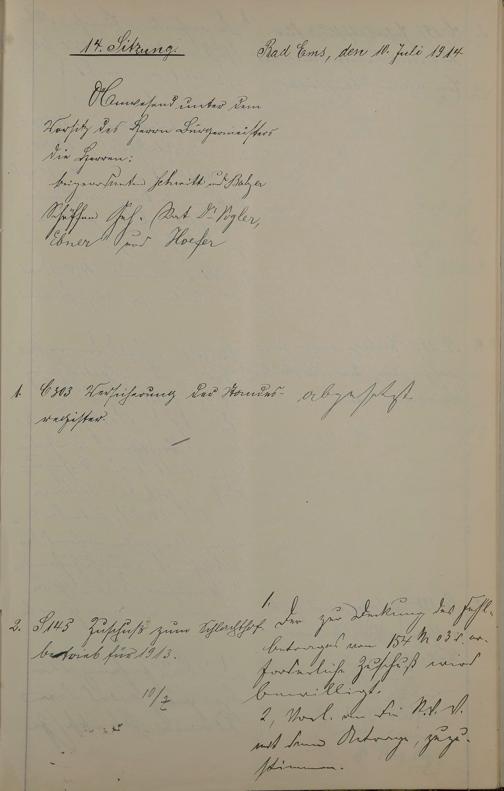 14. Sitzung.
Bad Ems, den 10. Juli 1914
Anwesend unter dem
Vorsitz des Herrn Bürgermeisters
die Herren:
Beigeordneten Schmitt und Balzer
Schöffen Geh. Rat Dr. Vogler,
Ebner und Hoefer
1. C 303 Versicherung der Standes-
register.
abgesetzt
2. S 145 Zuschuß zum Schlachthof
betrieb für 1913.
10/7
1. Der zur Deckung des Fehl-
betrages von 154 M 03 er-
forderliche Zuschuß wird
bewilligt.
2, Vorl. an die St. V.
mit dem Antrage, zuzu-
stimmen.